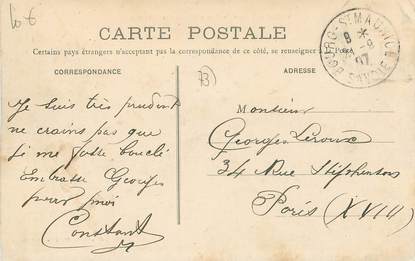 10 €
CARTE POSTALE
Certains pays étrangers n'acceptant pas la correspondance de ce côté, se renseigner à la Poste
CORRESPONDANCE
73
ADRESSE
BOURG-ST MAURICE
8 *
-9
07
SAVOIE
Je suis très prudent
ne crains pas que
je me fasse bouclé
Embrasse Georges
pour moi
Constant
Monsieur
Georges Leroux
34 Rue Stéphenson
Paris (XVIII)